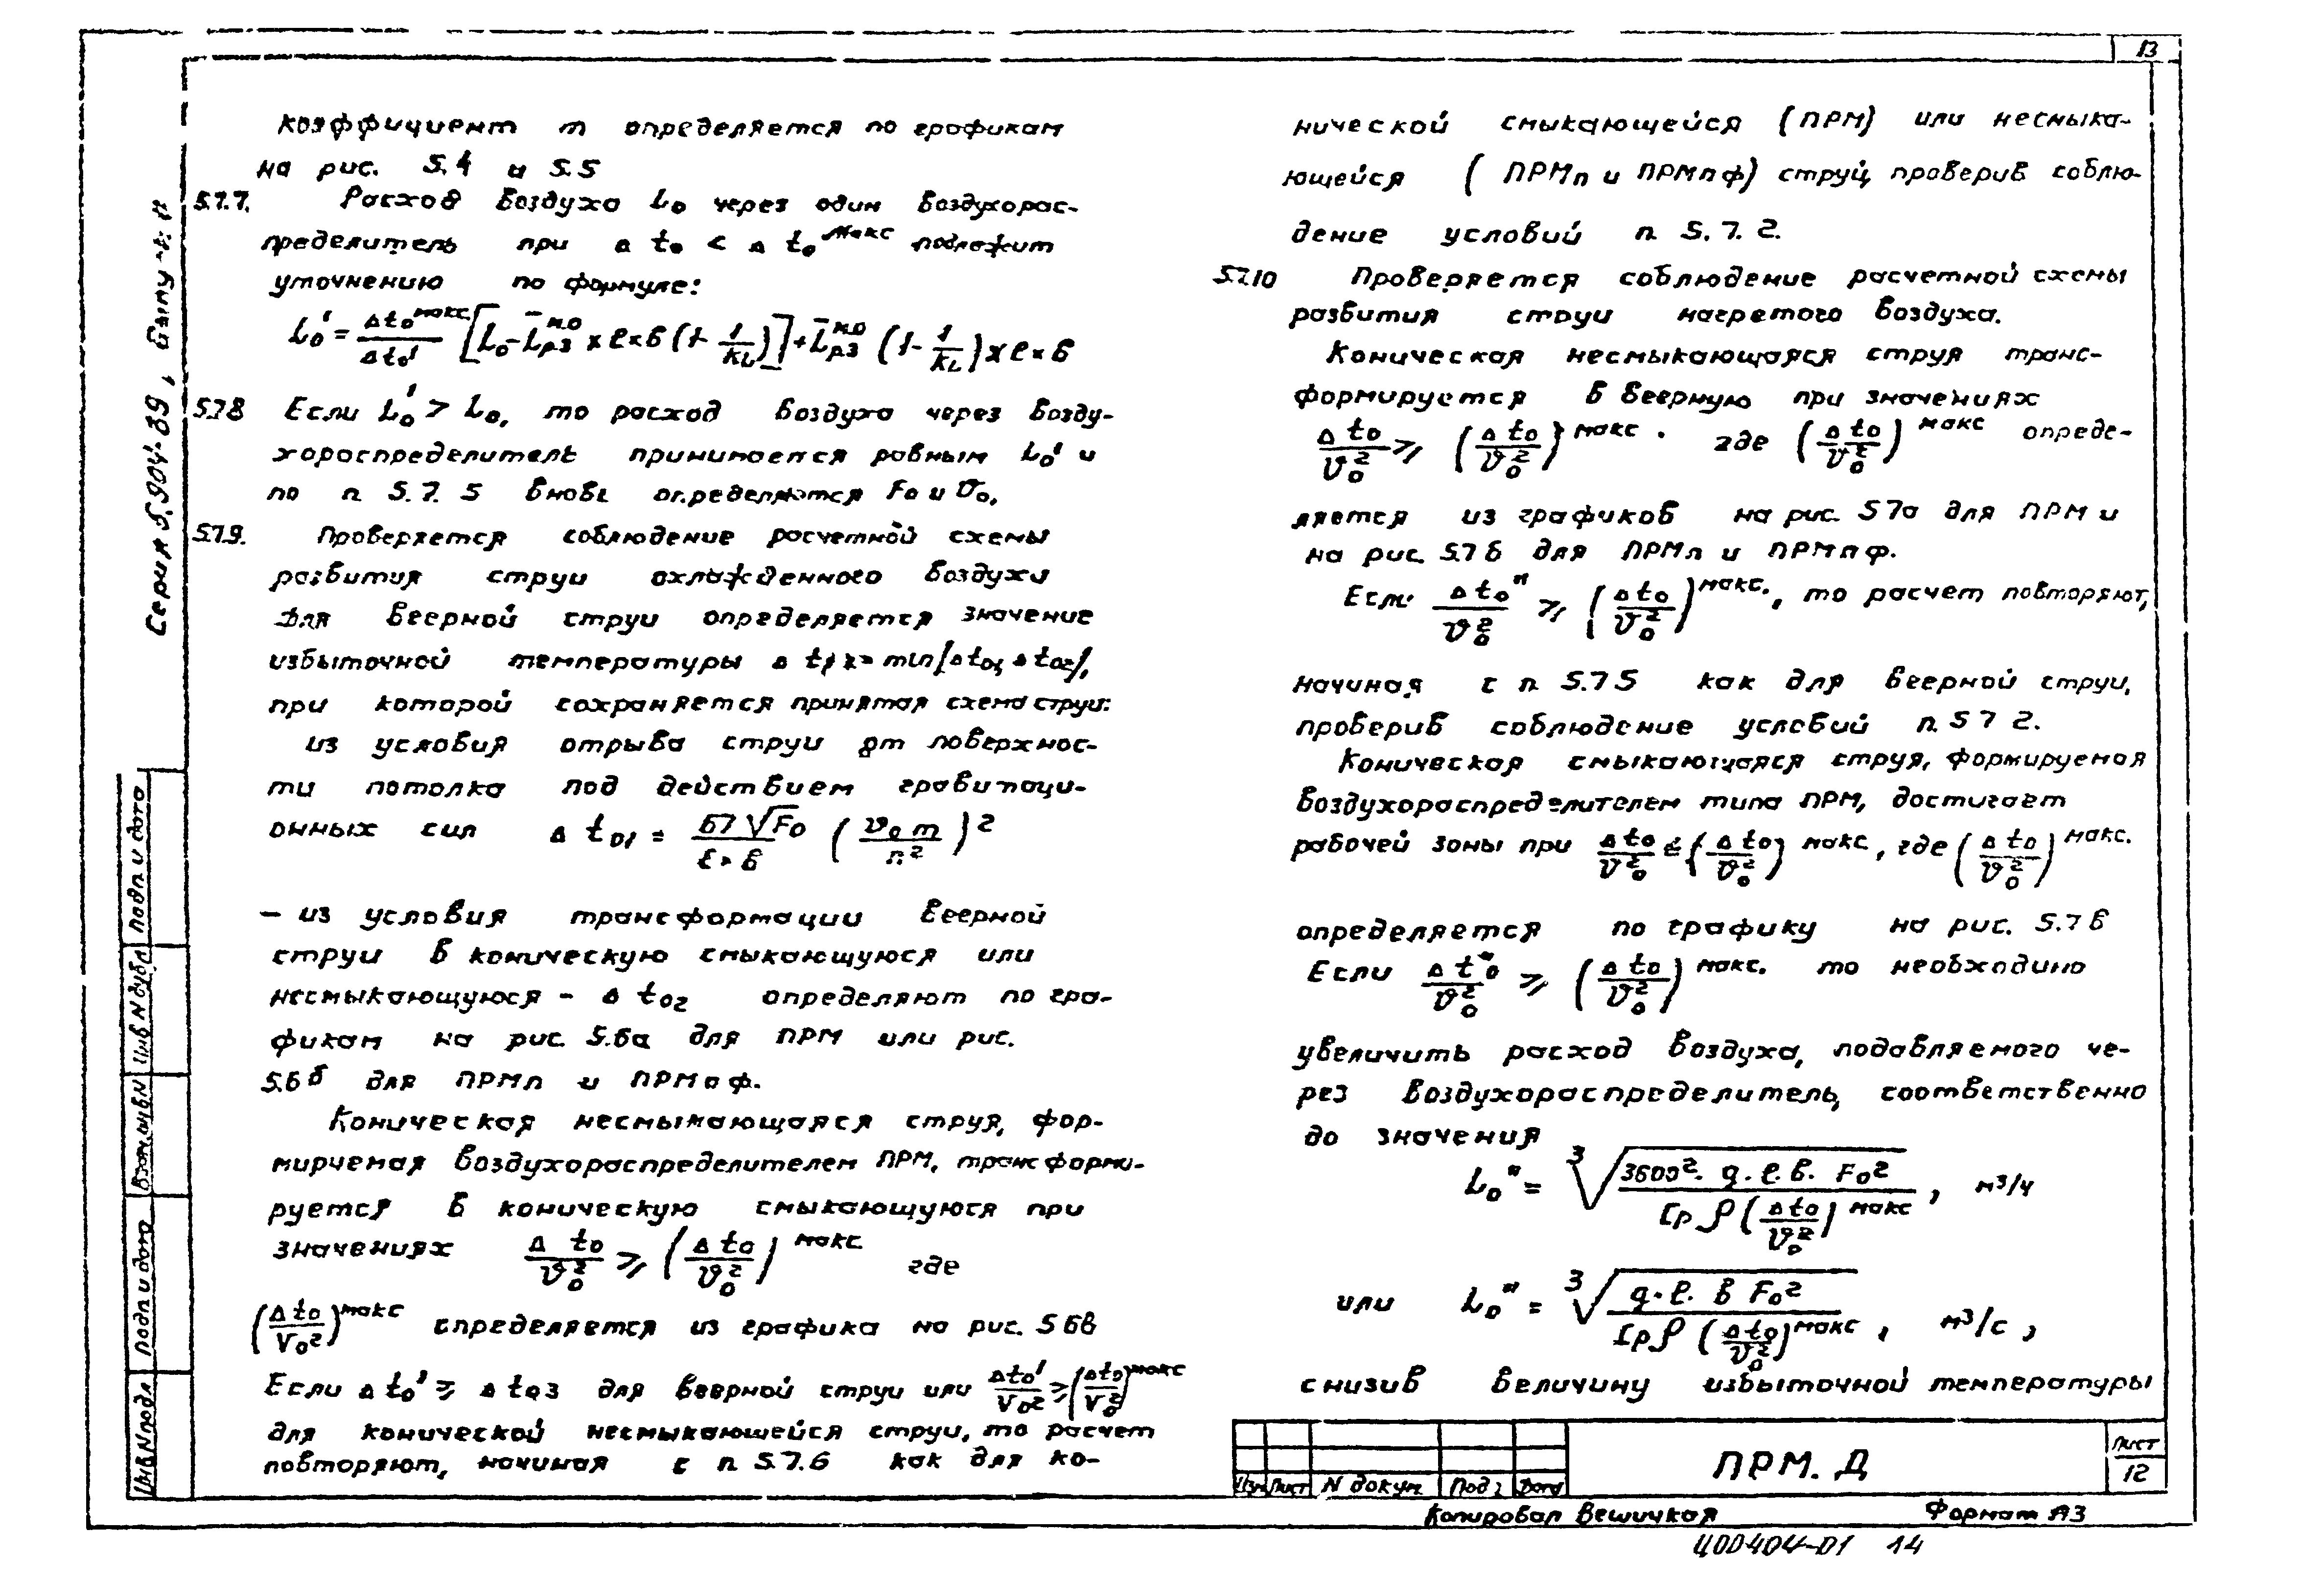 13
Коэффициент m определяется по графикам
на рис. 5.4 и 5.5
5.7.7. Расход воздуха L₀ через один воздухорас-
пределитель при Δt₀ < Δt₀ᵐᵃᵏᶜ подлежит
уточнению по формуле:
L₀' = Δt₀ᵐᵃᵏᶜ/Δt₀' [L₀ - L̄рзᴹ·ᴼ × ℓ × в (1 - 1/KL)] + L̄рзᴹ·ᴼ (1 - 1/KL) × ℓ × в
5.7.8 Если L₀' > L₀, то расход воздуха через возду-
хораспределитель принимается равным L₀' и
по п 5.7.5 вновь определяются F₀ и V₀.
5.7.9. Проверяется соблюдение расчетной схемы
развития струи охлажденного воздуха
Для веерной струи определяется значение
избыточной температуры = min/Δt₀₁, Δt₀₂/,
при которой сохраняется принятая схема струи:
из условия отрыва струи от поверхнос-
ти потолка под действием гравитаци-
онных сил Δt₀₁ = 67√F₀/(ℓ·в) (V₀ m/n²)²
– из условия трансформации веерной
струи в коническую смыкающуюся или
несмыкающуюся – Δt₀₂ определяют по гра-
фикам на рис. 5.6а для ПРМ или рис.
5.6б для ПРМп и ПРМпф.
Коническая несмыкающаяся струя, фор-
мируемая воздухораспределителем ПРМ, трансформи-
руется в коническую смыкающуюся при
значениях Δt₀/V₀² ≥ (Δt₀/V₀²)ᵐᵃᵏᶜ где
(Δt₀/V₀²)ᵐᵃᵏᶜ определяется из графика на рис. 5 6в
Если Δt₀' ≥ Δt₀₃ для веерной струи или Δt₀'/V₀² ≥ (Δt₀/V₀²)ᵐᵃᵏᶜ
для конической несмыкающейся струи, то расчет
повторяют, начиная с п 5.7.6 как для ко-
нической смыкающейся (ПРМ) или несмыка-
ющейся (ПРМп и ПРМпф) струй, проверив соблю-
дение условий п 5.7.2.
5.7.10 Проверяется соблюдение расчетной схемы
развития струи нагретого воздуха.
Коническая несмыкающаяся струя транс-
формируется в веерную при значениях
Δt₀/V₀² ≥ (Δt₀/V₀²)ᵐᵃᵏᶜ. где (Δt₀/V₀²)ᵐᵃᵏᶜ опреде-
ляется из графиков на рис. 5 7а для ПРМ и
на рис. 5.7 б для ПРМп и ПРМпф.
Если Δt₀"/V₀² ≥ (Δt₀/V₀²)ᵐᵃᵏᶜ·, то расчет повторяют,
начиная с п 5.7 5 как для веерной струи,
проверив соблюдение условий п. 5 7 2.
Коническая смыкающаяся струя, формируемая
воздухораспределителем типа ПРМ, достигает
рабочей зоны при Δt₀/V₀² ≤ (Δt₀/V₀²)ᵐᵃᵏᶜ, где (Δt₀/V₀²)ᵐᵃᵏᶜ·
определяется по графику на рис. 5.7 в
Если Δt₀"/V₀² ≥ (Δt₀/V₀²)ᵐᵃᵏᶜ· то необходимо
увеличить расход воздуха, подавляемого че-
рез воздухораспределитель, соответственно
до значения
L₀" = ∛(3600². q. ℓ. в. F₀² / Cp ρ (Δt₀/V₀²)ᵐᵃᵏᶜ), м³/ч
или L₀" = ∛(q. ℓ. в F₀² / Cp ρ (Δt₀/V₀²)ᵐᵃᵏᶜ), м³/с,
снизив величину избыточной температуры
Серия 5.904-89,
Подп и дата
Инв N дубл
Взам. инв N
Подп и дата
Инв N подл
Изм Лист N докум. Дата
ПРМ. Д
Лист
12
Копировал Вешичкая Формат А3
Ц00404-01 14